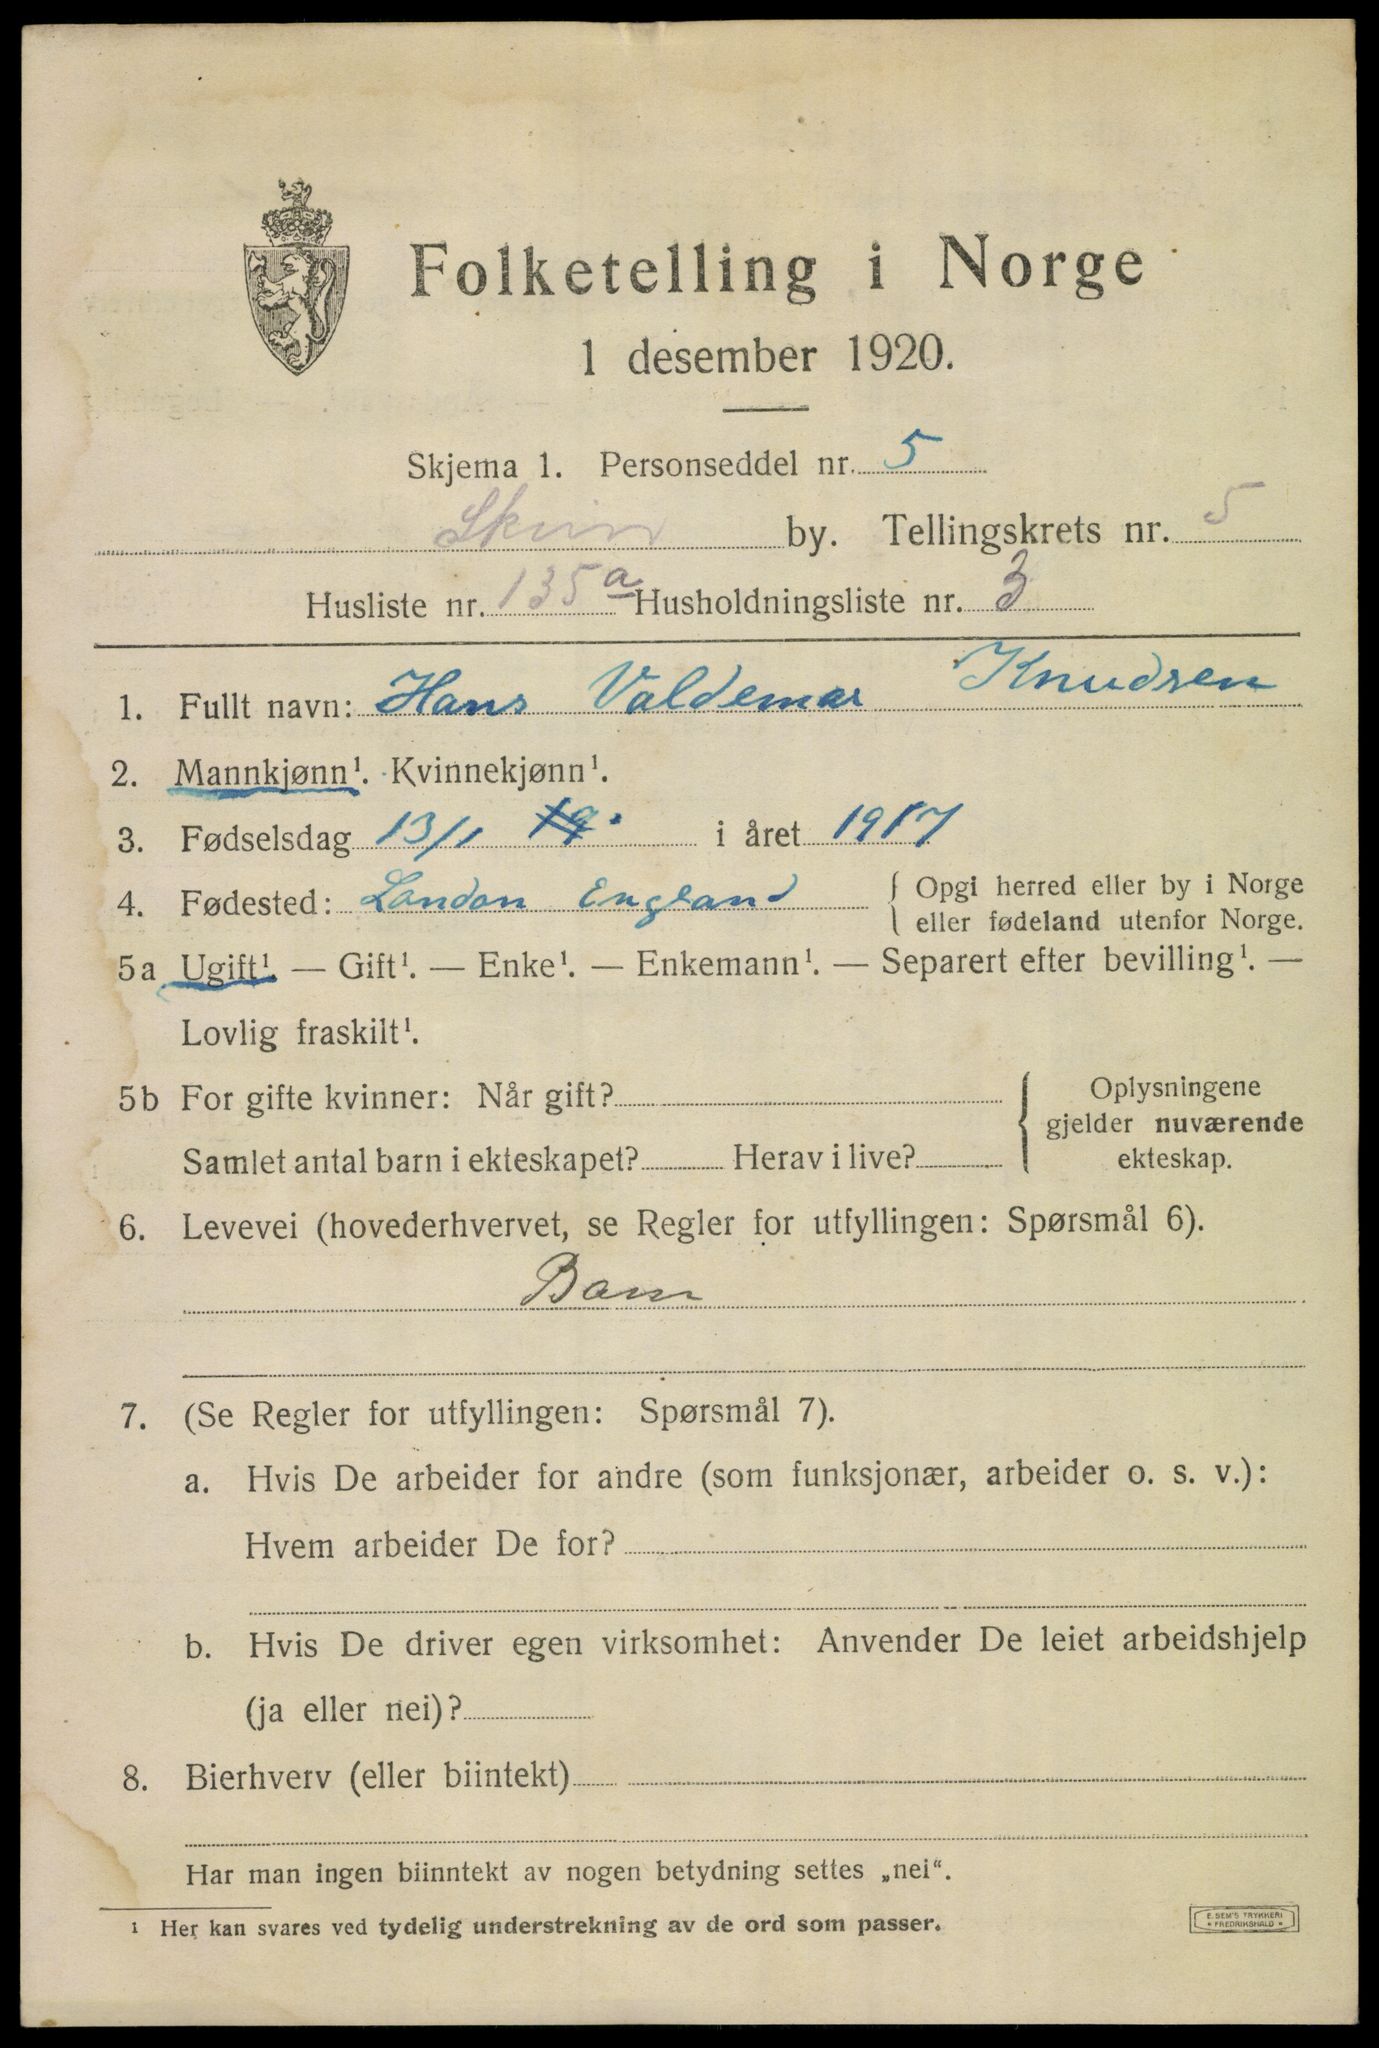 Folketelling i Norge
1 desember 1920.
Skjema 1. Personseddel nr. 5
Skien by. Tellingskrets nr. 5
Husliste nr. 135a Husholdningsliste nr. 3
1. Fullt navn: Hans Valdemar Knudsen
2. Mannkjønn¹. Kvinnekjønn¹.
3. Fødselsdag 13/1 19 i året 1917
4. Fødested: London England { Opgi herred eller by i Norge
eller fødeland utenfor Norge.
5a Ugift¹. — Gift¹. — Enke¹. — Enkemann¹. — Separert efter bevilling¹. —
Lovlig fraskilt¹.
5b For gifte kvinner: Når gift?
Samlet antal barn i ekteskapet? Herav i live?
{ Oplysningene
gjelder nuværende
ekteskap.
6. Levevei (hovederhvervet, se Regler for utfyllingen: Spørsmål 6).
Barn
7. (Se Regler for utfyllingen: Spørsmål 7).
a. Hvis De arbeider for andre (som funksjonær, arbeider o. s. v.):
Hvem arbeider De for?
b. Hvis De driver egen virksomhet: Anvender De leiet arbeidshjelp
(ja eller nei)?
8. Bierhverv (eller biintekt)
Har man ingen biinntekt av nogen betydning settes „nei“.
¹ Her kan svares ved tydelig understrekning av de ord som passer.
E. SEM'S TRYKKERI
* FREDRIKSHALD *